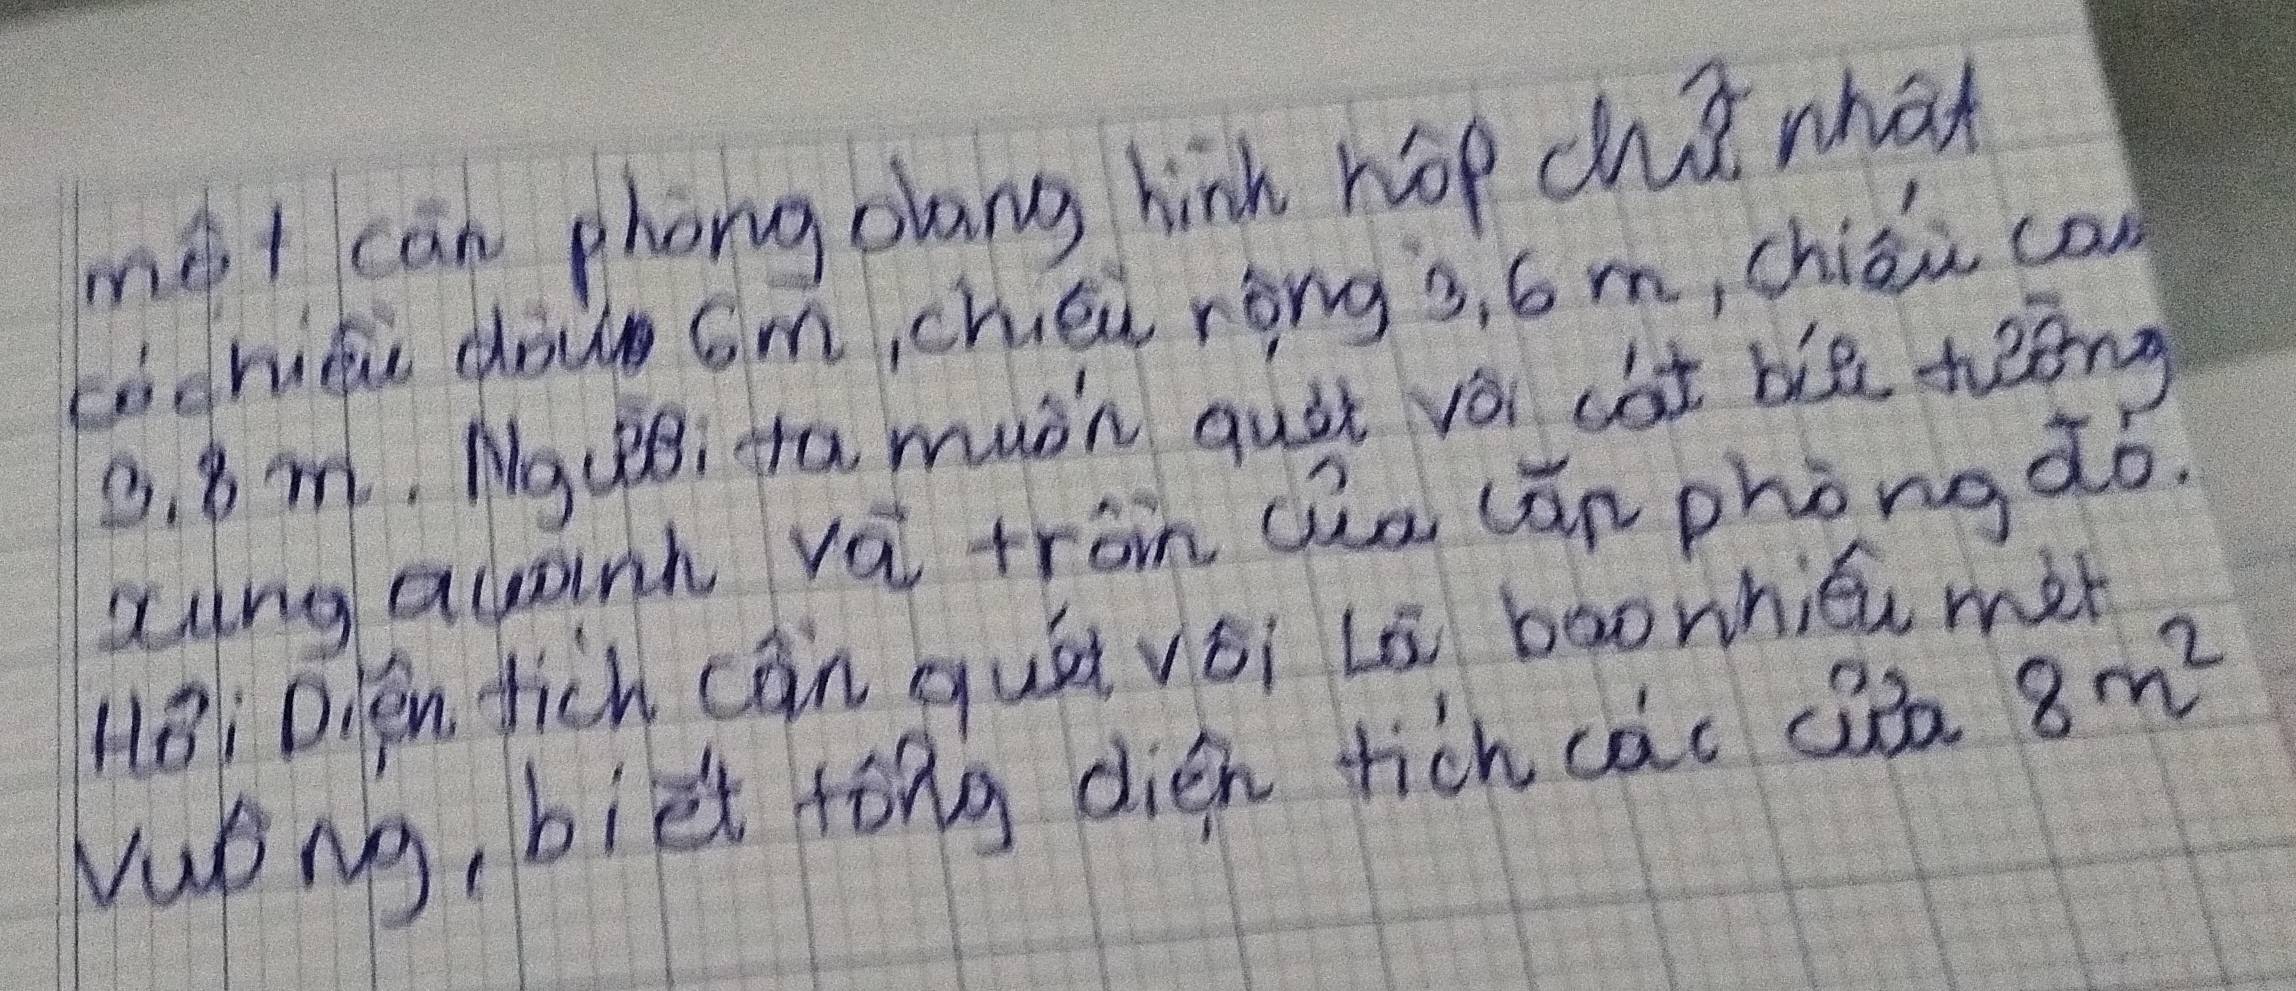 một căn phòng dạng hình hộp chữ nhật
có chiều dài 6m, chiều rộng 3,6 m, chiều cao
3,8 m. Người ta muốn quét vôi cát bức tường
xung quanh và trần của căn phòng đó.
Hỏi Diện tích cần quét vôi Là bao nhiêu mét
vuông, biết tổng diện tích các cửa 8 m²